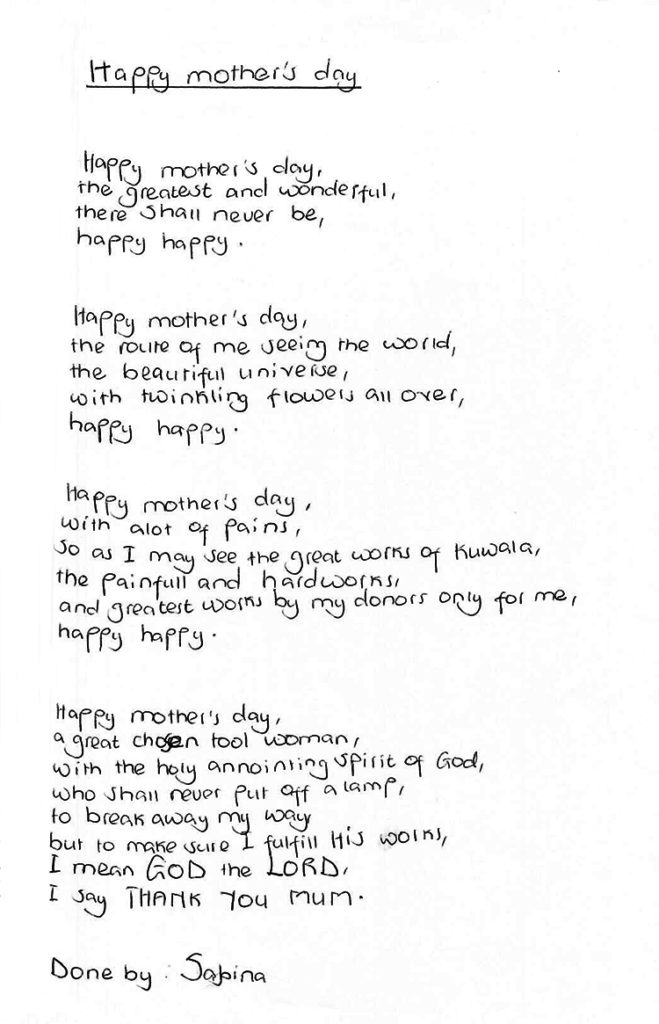 Happy mother's day
Happy mother's day,
the greatest and wonderful,
there shall never be,
happy happy.
Happy mother's day,
the route of me seeing the world,
the beautiful universe,
with twinkling flowers all over,
happy happy.
Happy mother's day,
with alot of pains,
so as I may see the great works of Kuwala,
the painfull and hardworks,
and greatest works by my donors only for me,
happy happy.
Happy mother's day,
a great chosen tool woman,
with the holy annointing spirit of God,
who shall never put off a lamp,
to break away my way
but to make sure I fulfill His works,
I mean GOD the LORD,
I say THANK YOU MUM.
Done by : Sabina